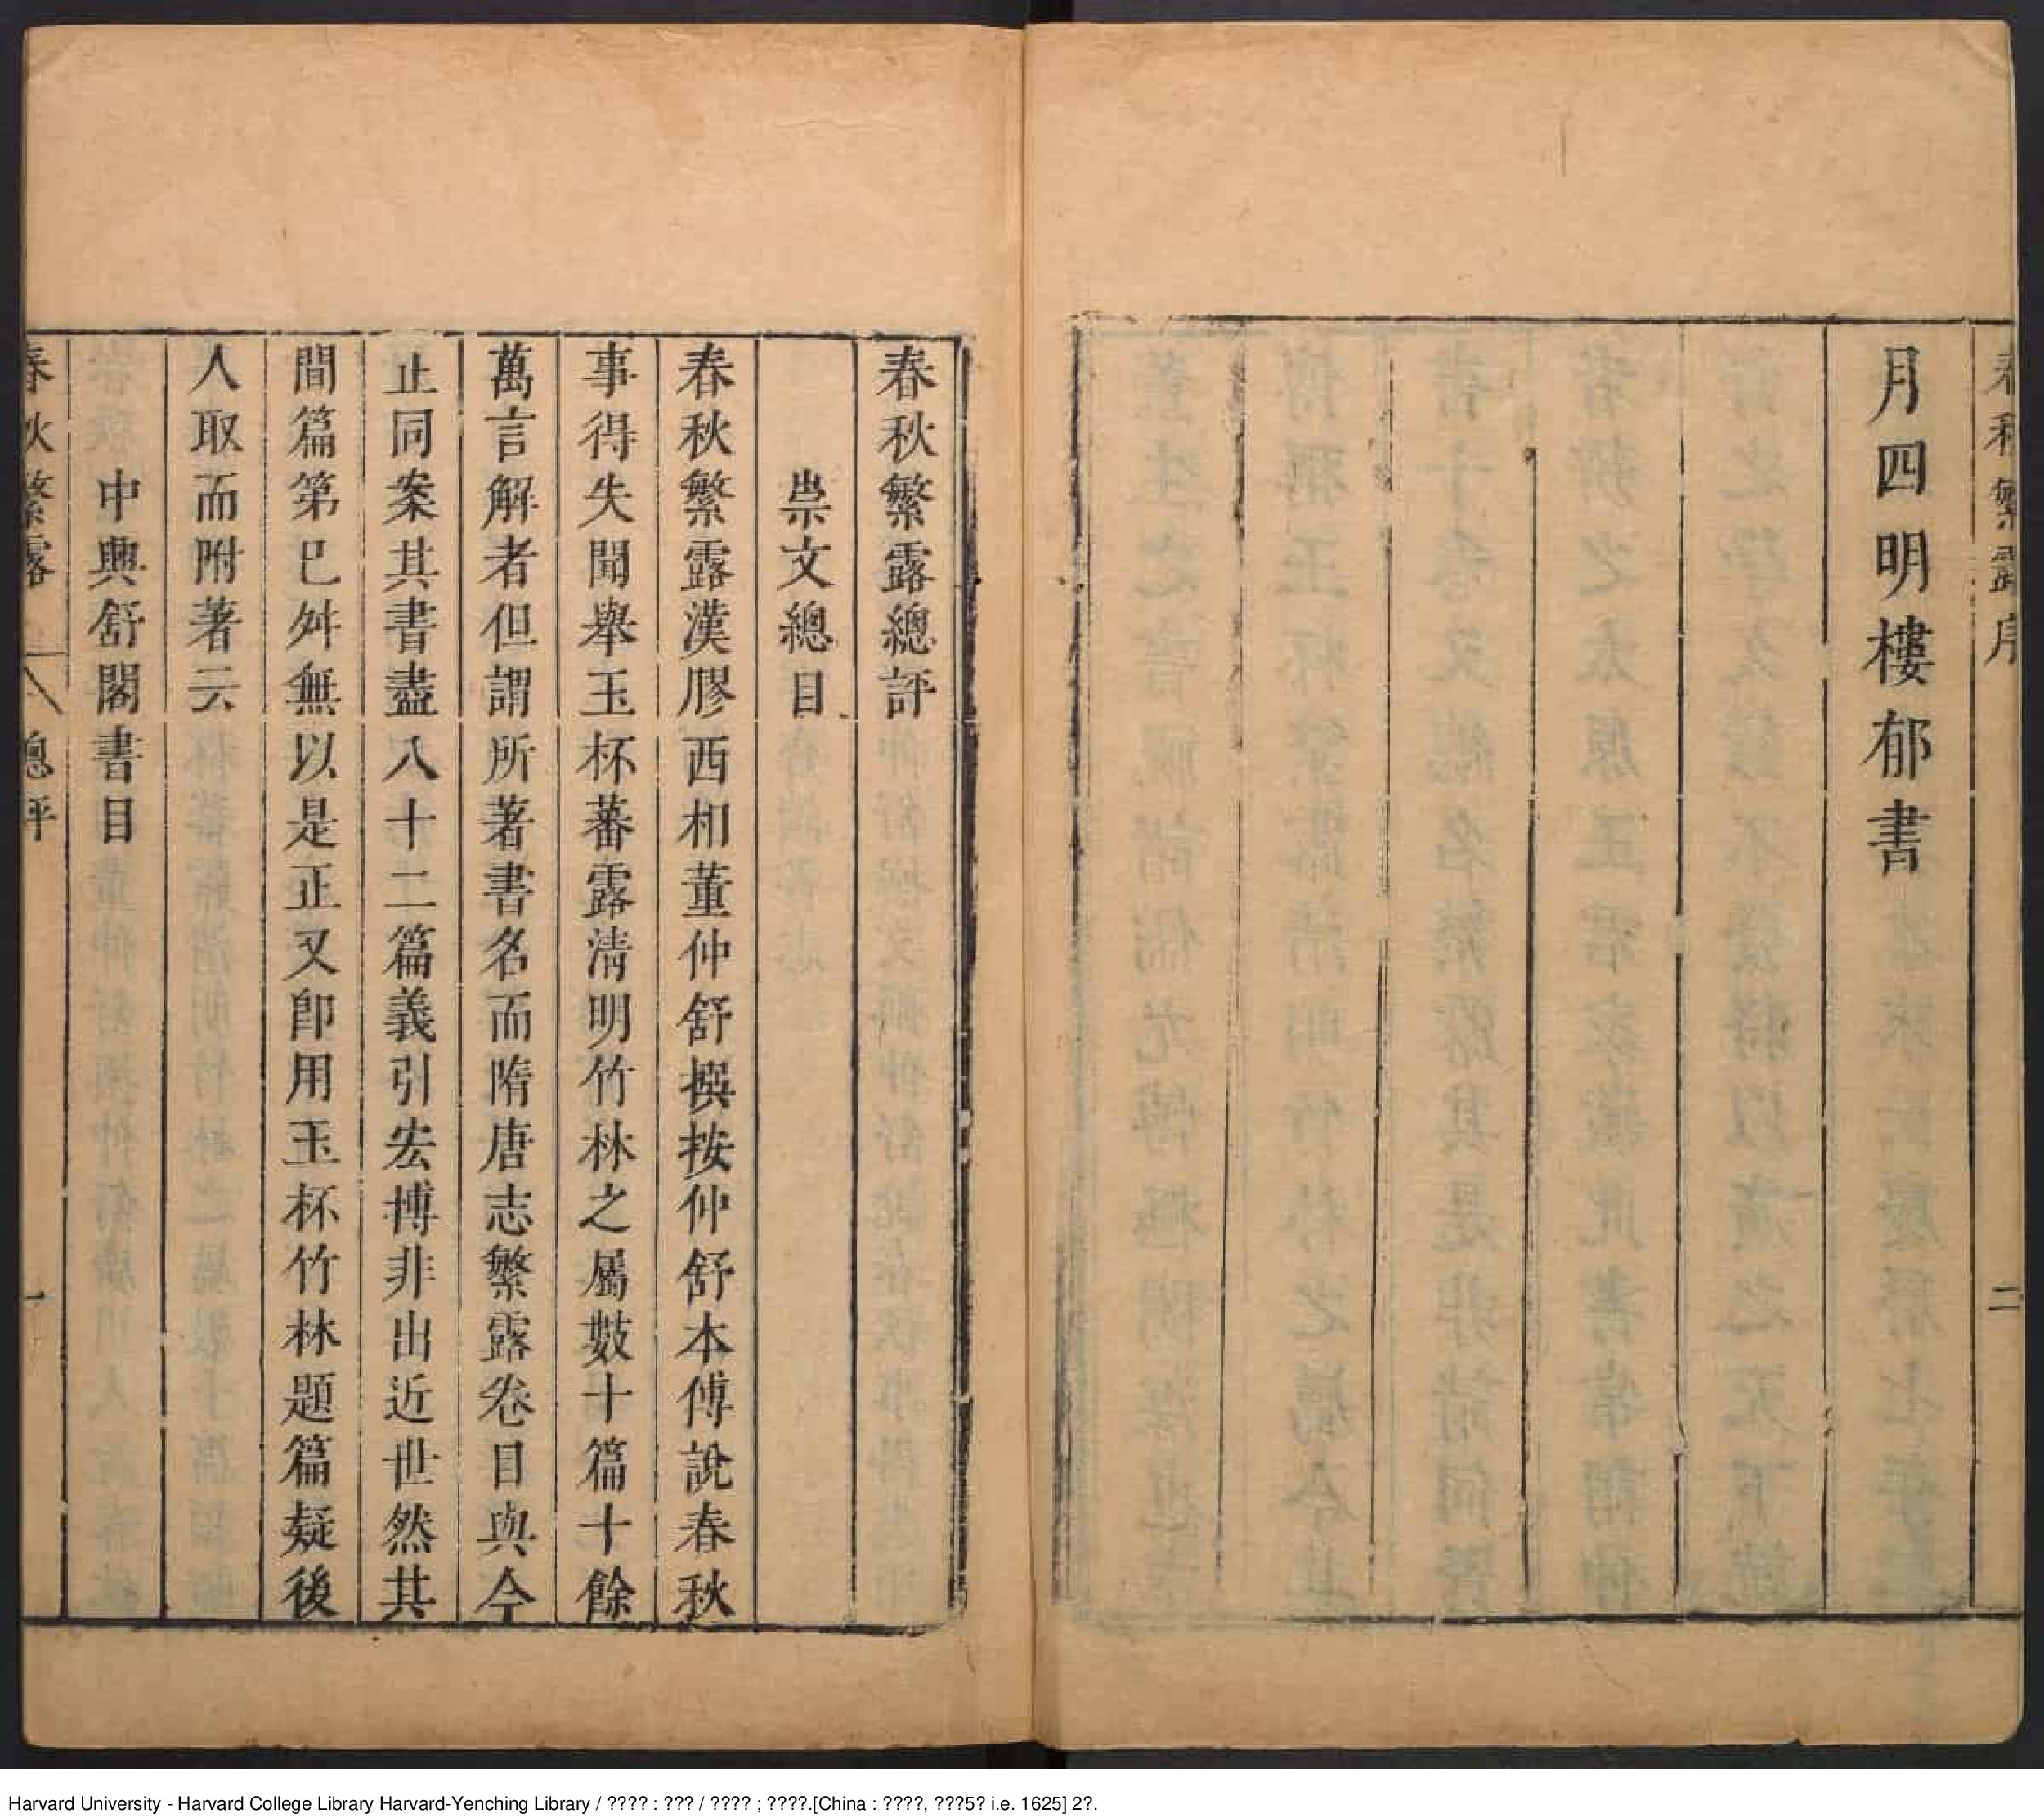 春秋繁露序
二
月四明樓郁書
春秋繁露總評
祟文總目
春秋繁露漢膠西相董仲舒撰按仲舒本傅說春秋
事得失聞舉玉杯蕃露淸明竹林之屬數十篇十餘
萬言解者但謂所著書名而隋唐志繁露卷目與今
止同案其書盡八十二篇義引宏博非出近世然其
間篇第巳舛無以是正又卽用玉杯竹林題篇疑後
人取而附著云
中興舒閣書目
春秋繁露
總評
一
Harvard University - Harvard College Library Harvard-Yenching Library / ???? : ??? / ???? ; ????.[China : ????, ???5? i.e. 1625] 2?.